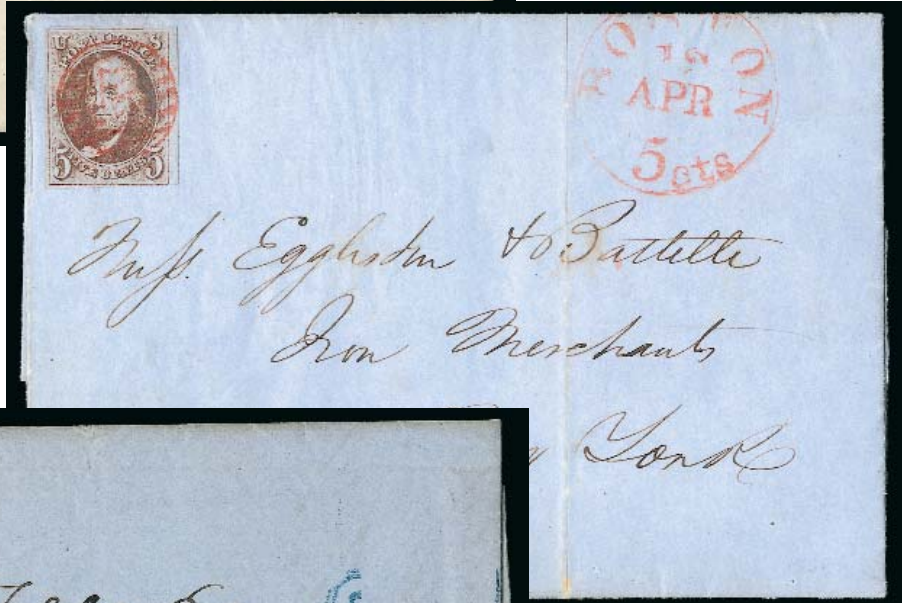 U S
POST OFFICE
5 FIVE CENTS 5
BOSTON
APR
5cts
Messrs. Eggleston & Battelle
Iron Merchants
York